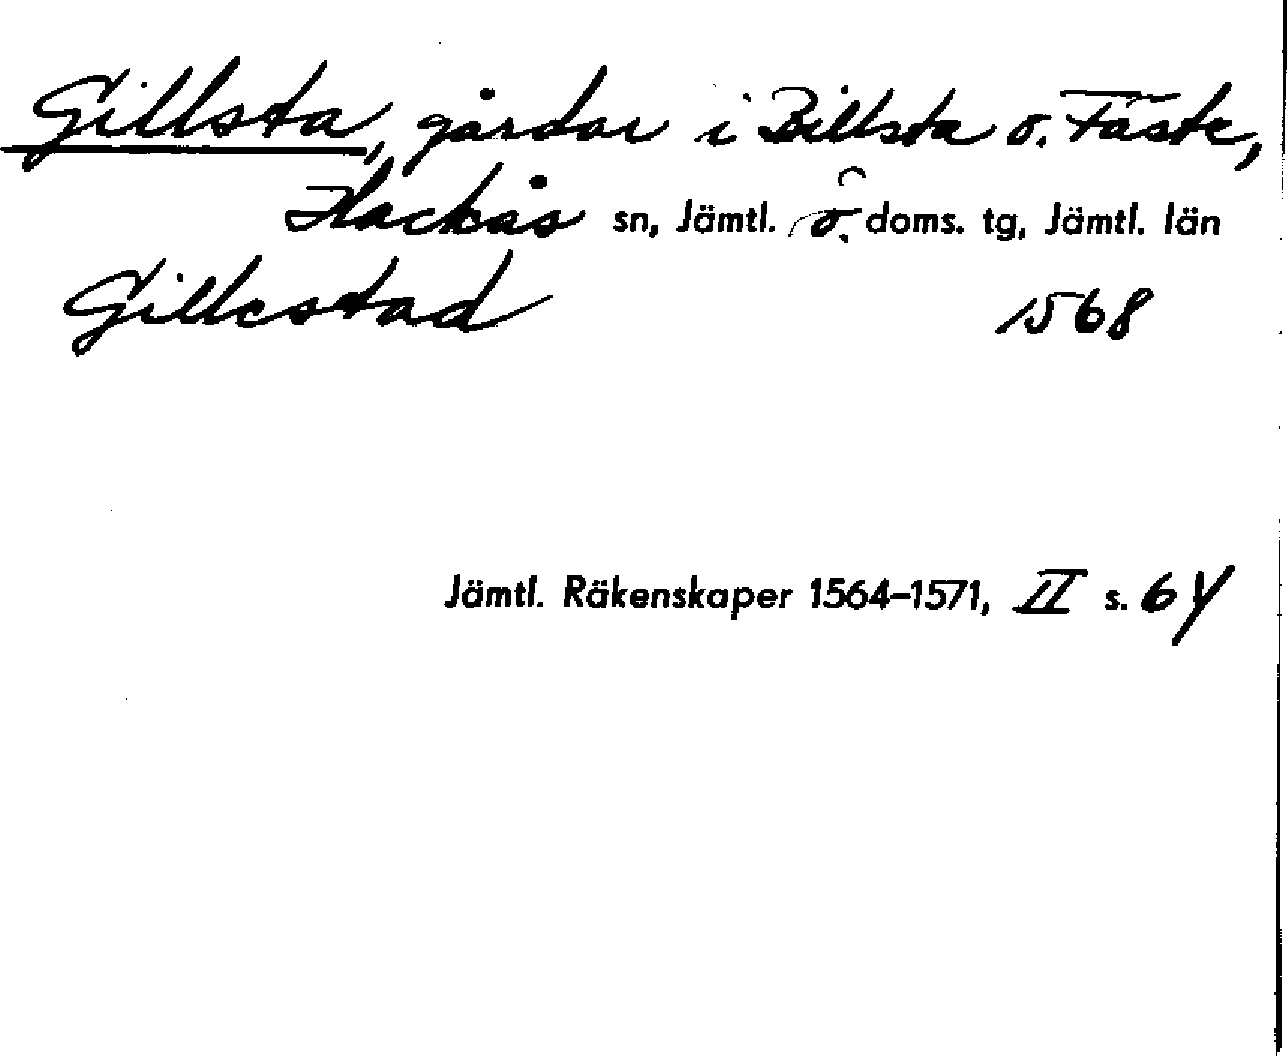 Gillsta, gårdar i Billsta o. Fäste,
Hackås sn, Jämtl. ö. doms. tg, Jämtl. län
Gillestad 1568
Jämtl. Räkenskaper 1564–1571, II s. 64